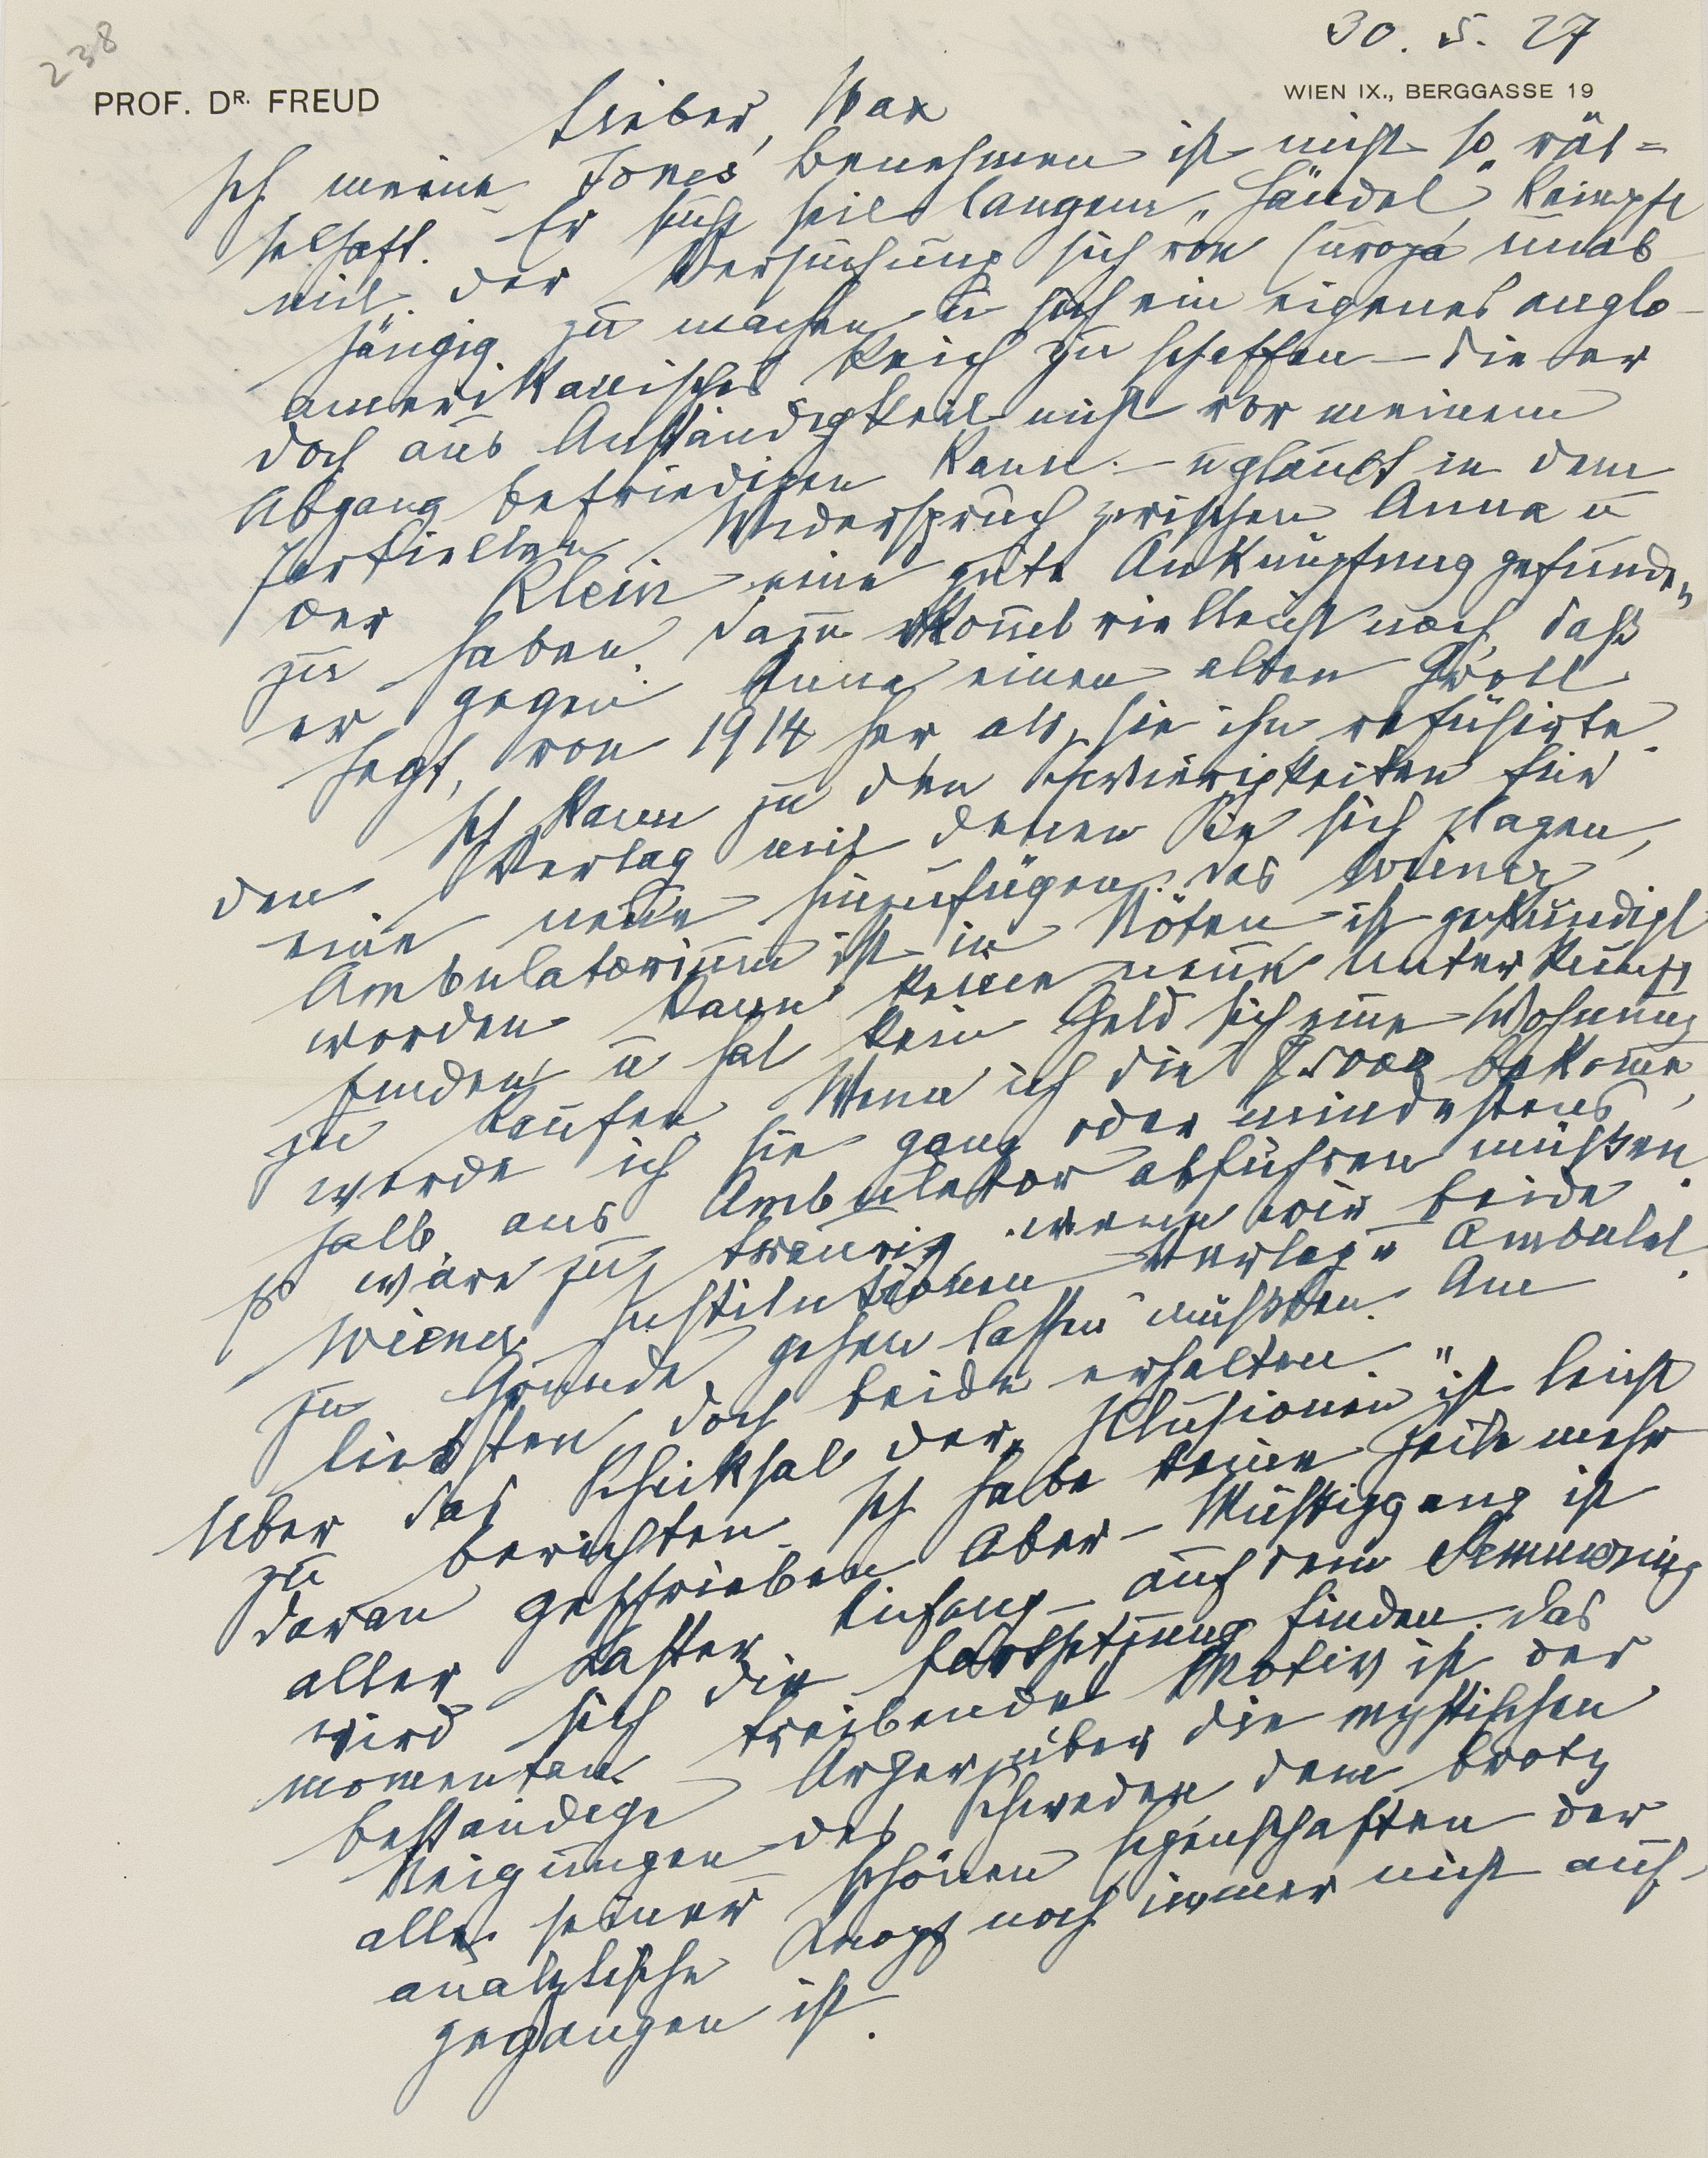 238
30. 5. 27
PROF. DR. FREUD
WIEN IX., BERGGASSE 19
Lieber Max
Ich meine Jones' Benehmen ist nicht so rät=
selhaft. Er sucht seit langem „Händel", kämpft
mit der Versuchung sich von Europa unab
hängig zu machen u sich ein eigenes anglo-
amerikanisches Reich zu schaffen — die er
doch aus Anständigkeit nicht vor meinem
Abgang befriedigen kann. — u glaubt in dem
partiellen Widerspruch zwischen Anna u
der Klein eine gute Anknüpfung gefunden
zu haben. Dazu kommt vielleicht noch, daß
er gegen Anna einen alten Groll
hegt, von 1914 her als sie ihn refüsirte.
Ich kann zu den Schwierigkeiten für
den Verlag mit denen Sie sich plagen,
eine neue hinzufügen. Das Wiener
Ambulatorium ist in Nöten ist gekündigt
worden kann keine neue Unterkunft
finden u hat kein Geld sich eine Wohnung
zu kaufen. Wenn ich die $ 5000 bekomme,
werde ich sie ganz oder mindestens
halb ans Ambulator abführen müssen.
Es wäre zu traurig wenn wir beide
Wiener Institutionen Verlag u Ambulat.
zu Grunde gehen lassen müßten. Am
liebsten doch beide erhalten.
Über das Schicksal der „Illusionen" ist leicht
zu berichten. Ich habe keine Zeile mehr
daran geschrieben. Aber — Müssiggang ist
aller Laster Anfang — auf dem Semmering
wird sich die Fortsetzung finden. Das
momentan treibende Motiv ist der
beständige Ärger über die mystischen
Neigungen des Schweden dem trotz
aller seiner schönen Eigenschaften der
analytische Knopf noch immer nicht auf-
gegangen ist.